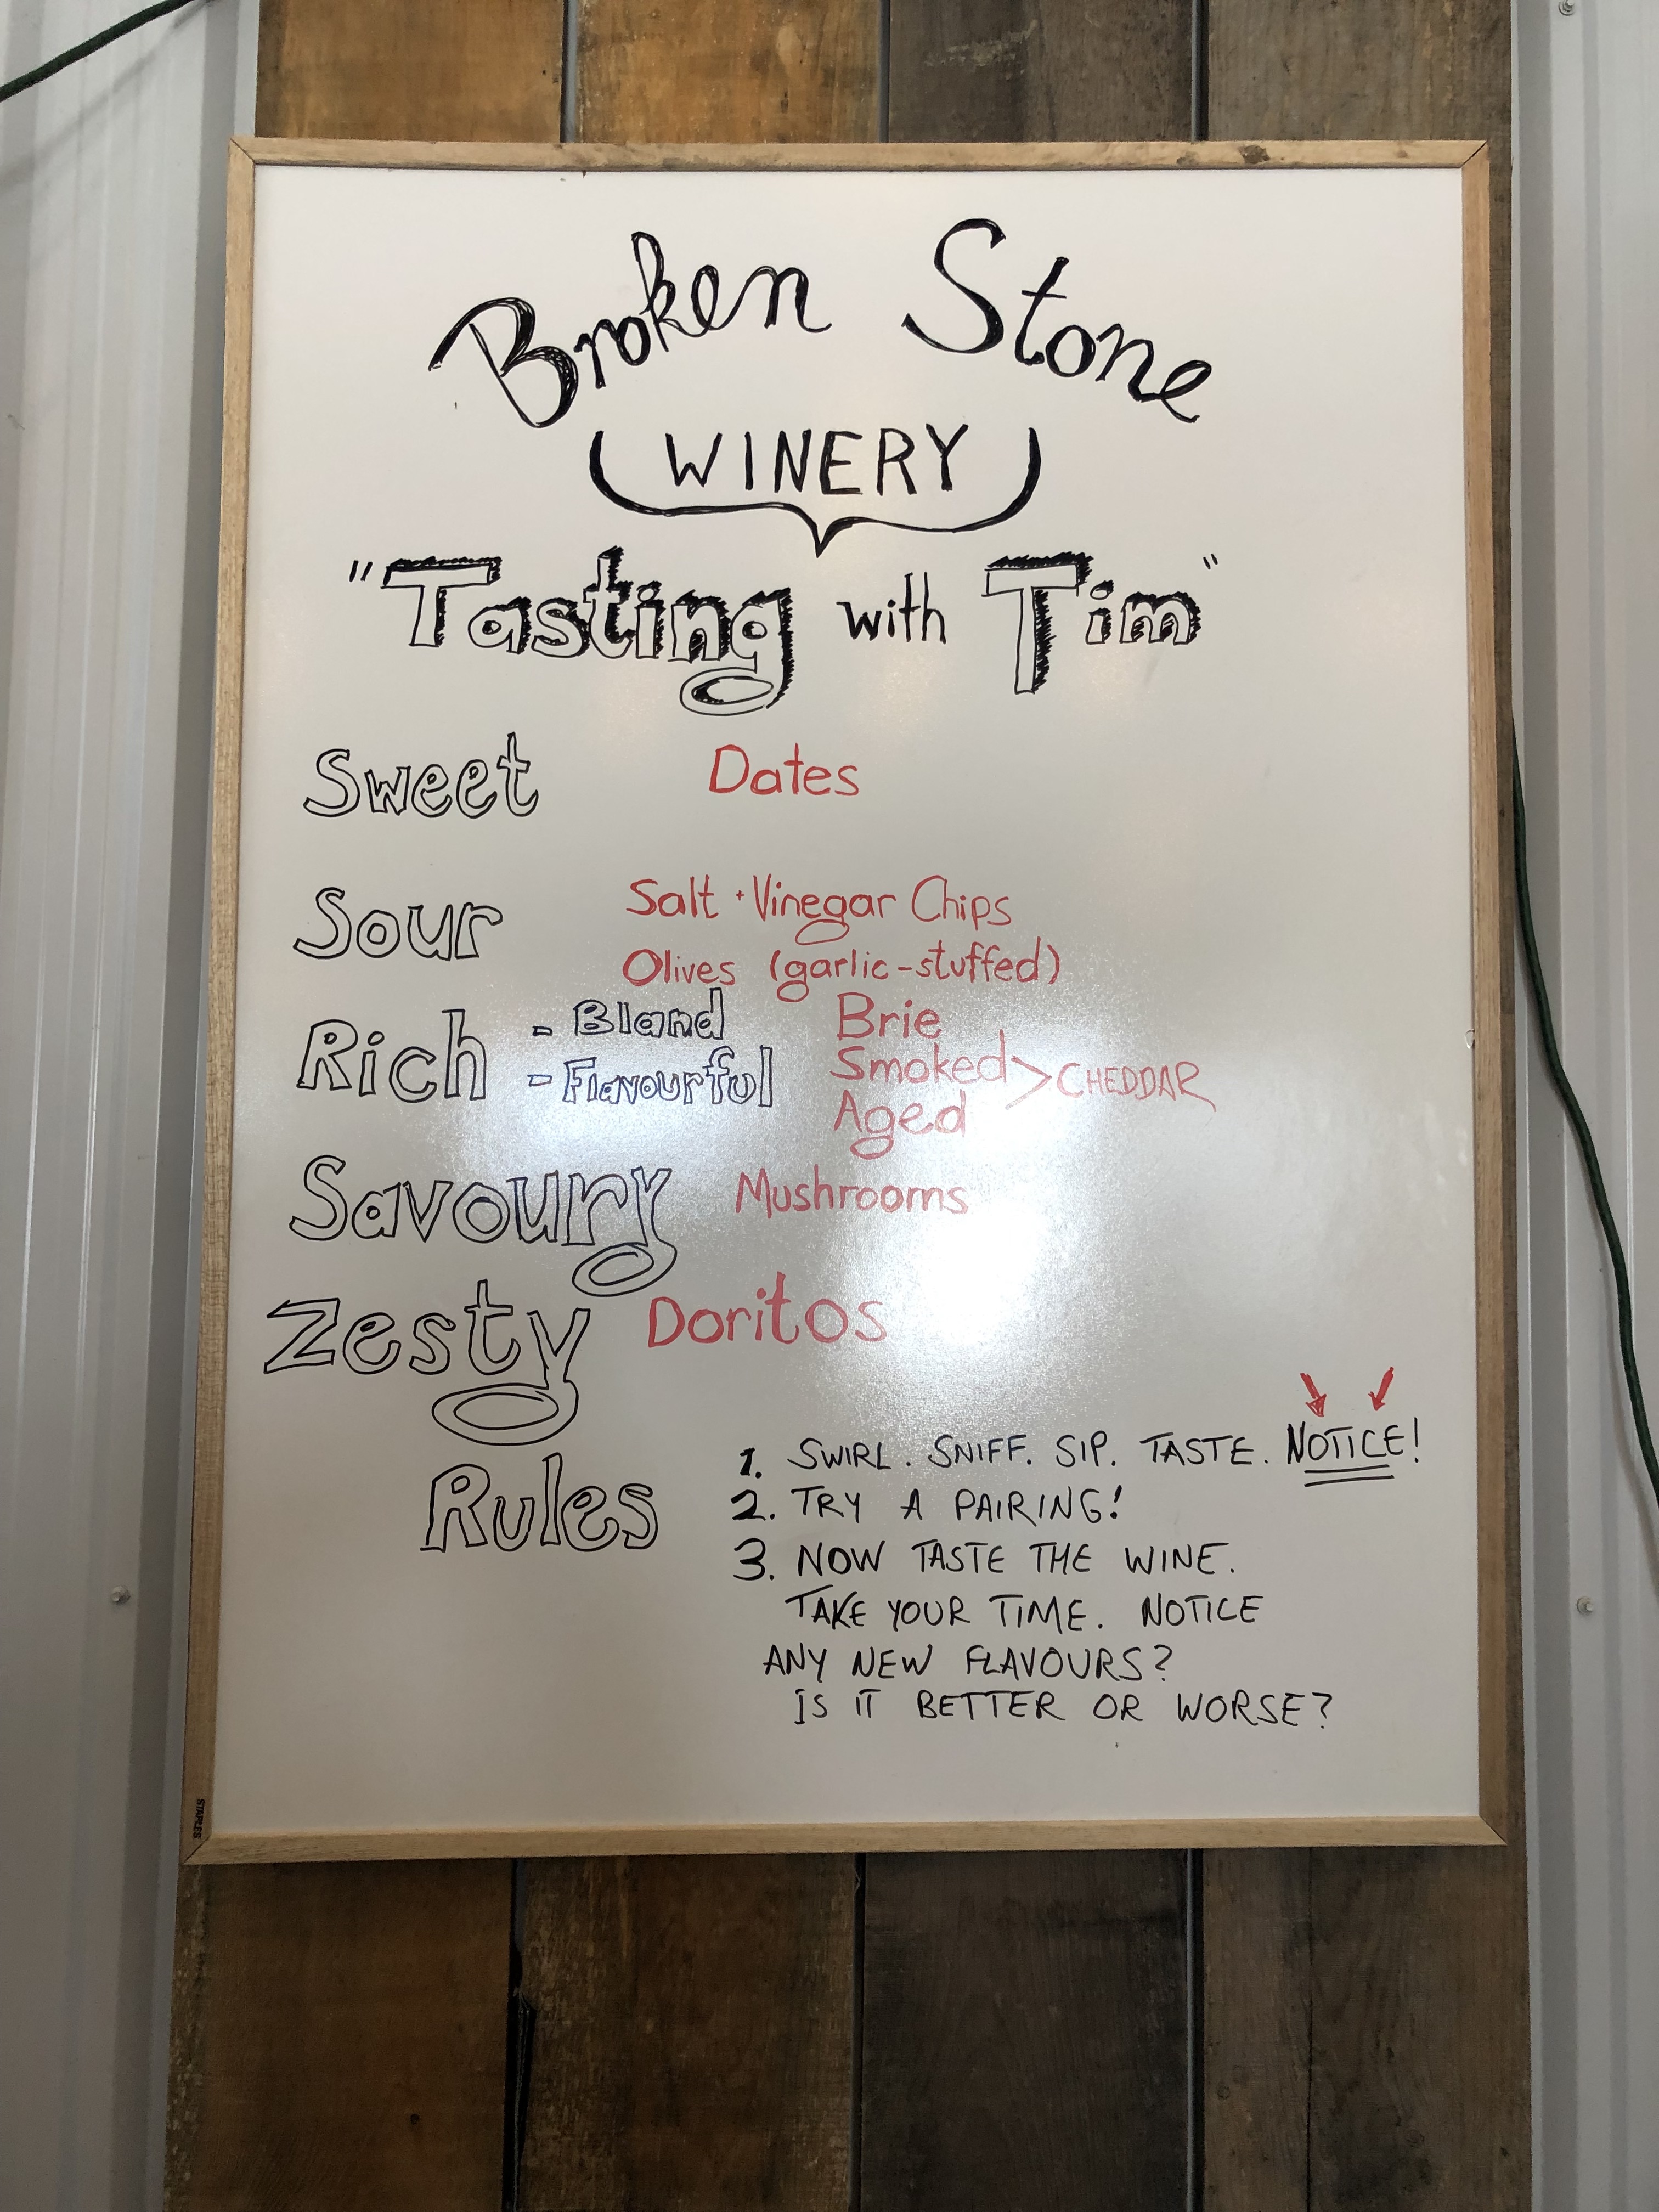 Broken Stone
WINERY
"Tasting with Tim"
Sweet Dates
Sour Salt + Vinegar Chips
Olives (garlic-stuffed)
Rich - Bland Brie
- Flavourful Smoked > CHEDDAR
Aged
Savoury Mushrooms
Zesty Doritos
Rules 1. SWIRL. SNIFF. SIP. TASTE. NOTICE!
2. TRY A PAIRING!
3. NOW TASTE THE WINE.
TAKE YOUR TIME. NOTICE
ANY NEW FLAVOURS?
IS IT BETTER OR WORSE?
STAPLES